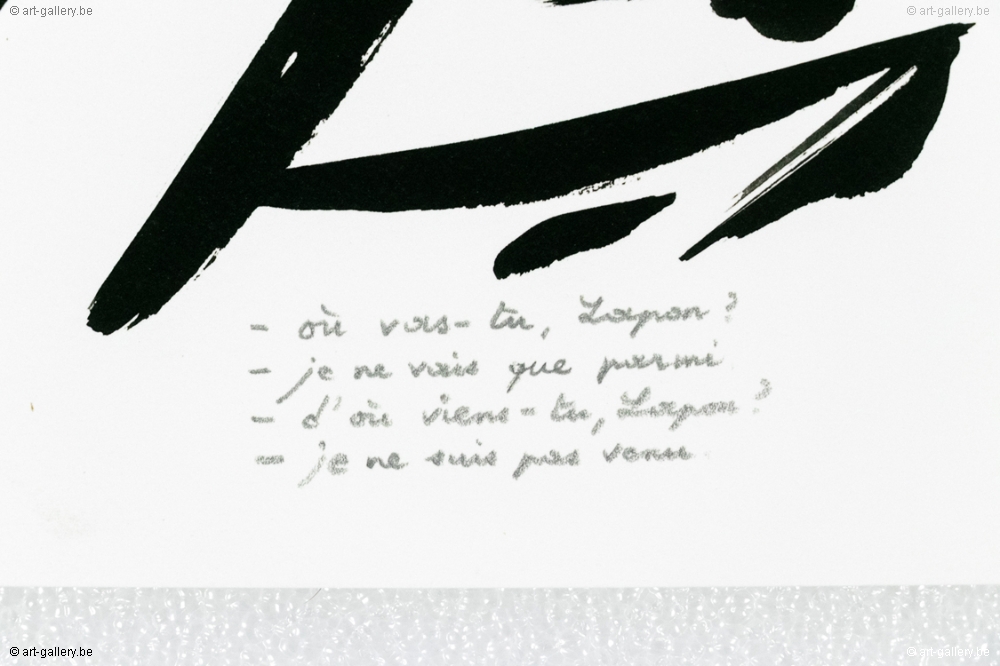 © art-gallery.be © art-gallery.be
- où vas-tu, Lapon ?
- je ne vais que parmi
- d'où viens-tu, Lapon ?
- je ne suis pas venu
© art-gallery.be © art-gallery.be